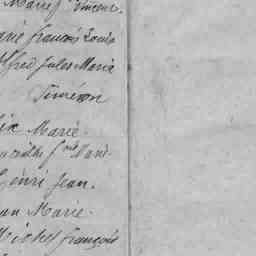 Marie f Vincent.
arie françois Louis
Alfred Jules Marie
Siméon
lix Marie
f.ois Marie
Henri Jean.
ean Marie.
Michel françois